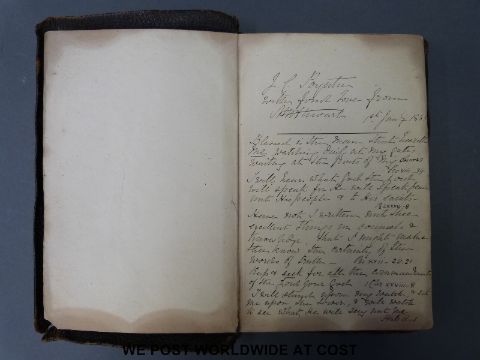 with fond love from
1st Jan
Blessed is the man that heareth
me, watching daily at my gates
waiting at the posts of my doors
I will hear what God the Lord
will speak for He will speak peace
unto His people & to His saints
Have not I written unto thee
excellent things in counsels &
knowledge. That I might make
thee know the certainty of the
words of truth. 20.21
Keep & seek for all the commandments
of the Lord your God
I will stand upon my watch & set
me upon the tower, & will watch
to see what He will say unto me
WE POST WORLDWIDE AT COST